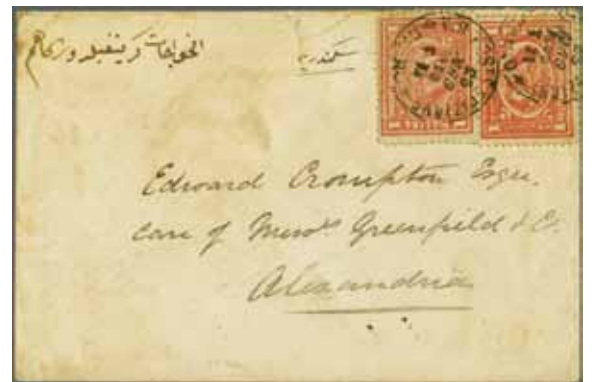 الخواجات كرينفيلد وشركاهم
سكندريه
Edward Crompton Esqre.
care of Messrs Greenfield & Co.
Alexandria